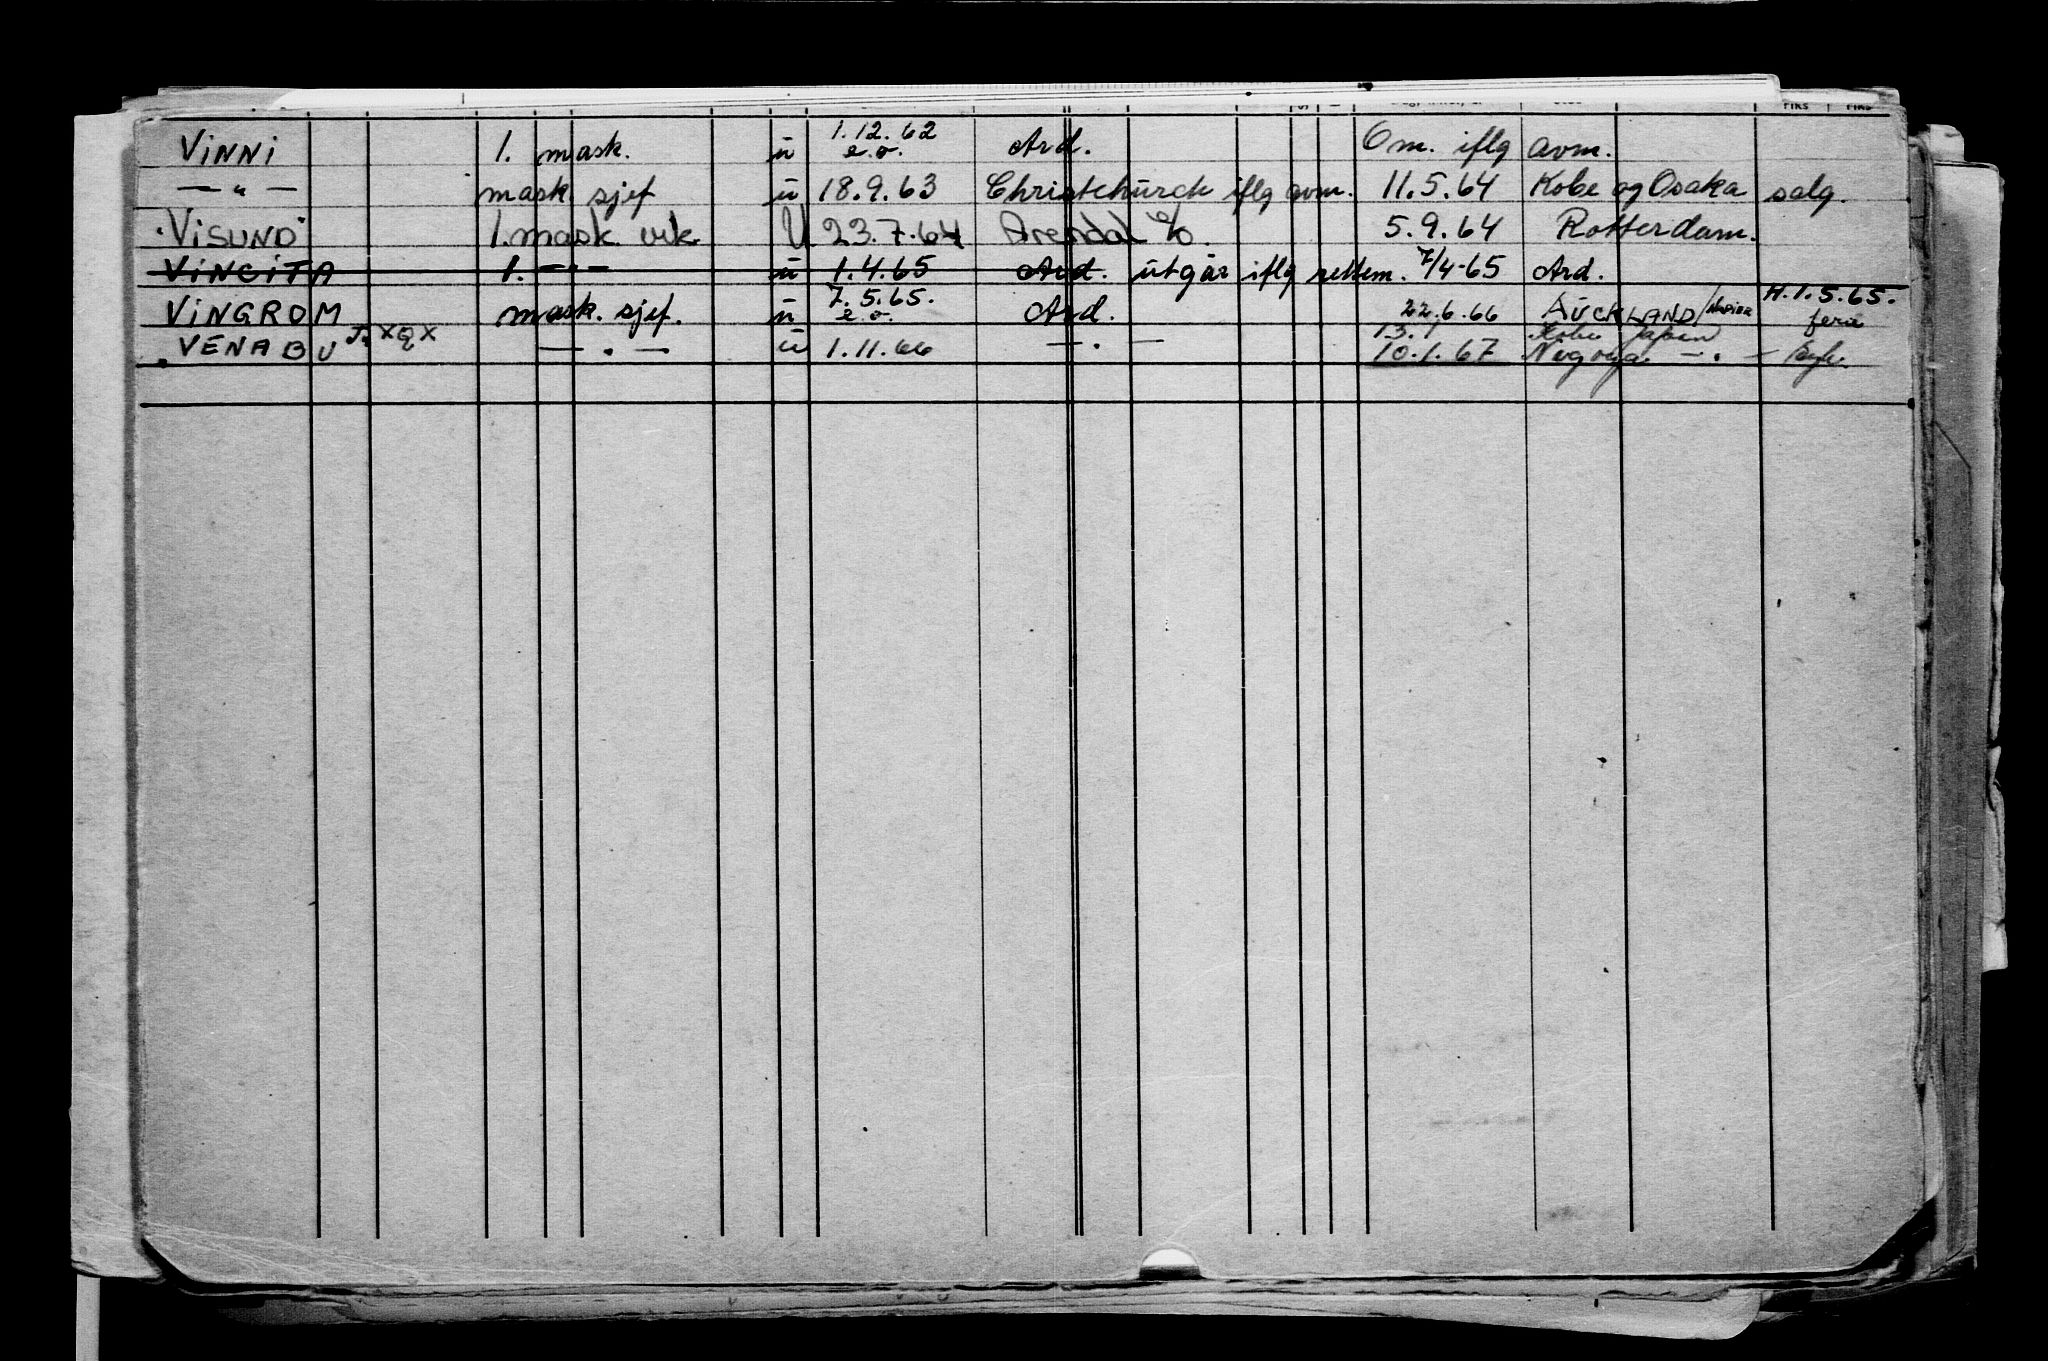 FIKS FIKS
VINNI 1. mask. u 1.12.62 e.o. Ard. Om. iflg avm.
— " — mask sjef u 18.9.63 Christchurch iflg avm. 11.5.64 Kobe og Osaka salg.
"VISUND" 1. mask. vik. U 23.7.64 Arendal 5.9.64 Rotterdam.
VINCITA 1. — " — u 1.4.65 Ard. utgår iflg rettem. 7/4-65 Ard.
H. 1.5.65.
VINGROM mask. sjef. u 7.5.65. e.o. Ard. 22.6.66 AUCKLAND/Napier ferie
13.1 Kobe Japan
VENABU — " — u 1.11.66 — " — 10.1.67 Nagoya — " —